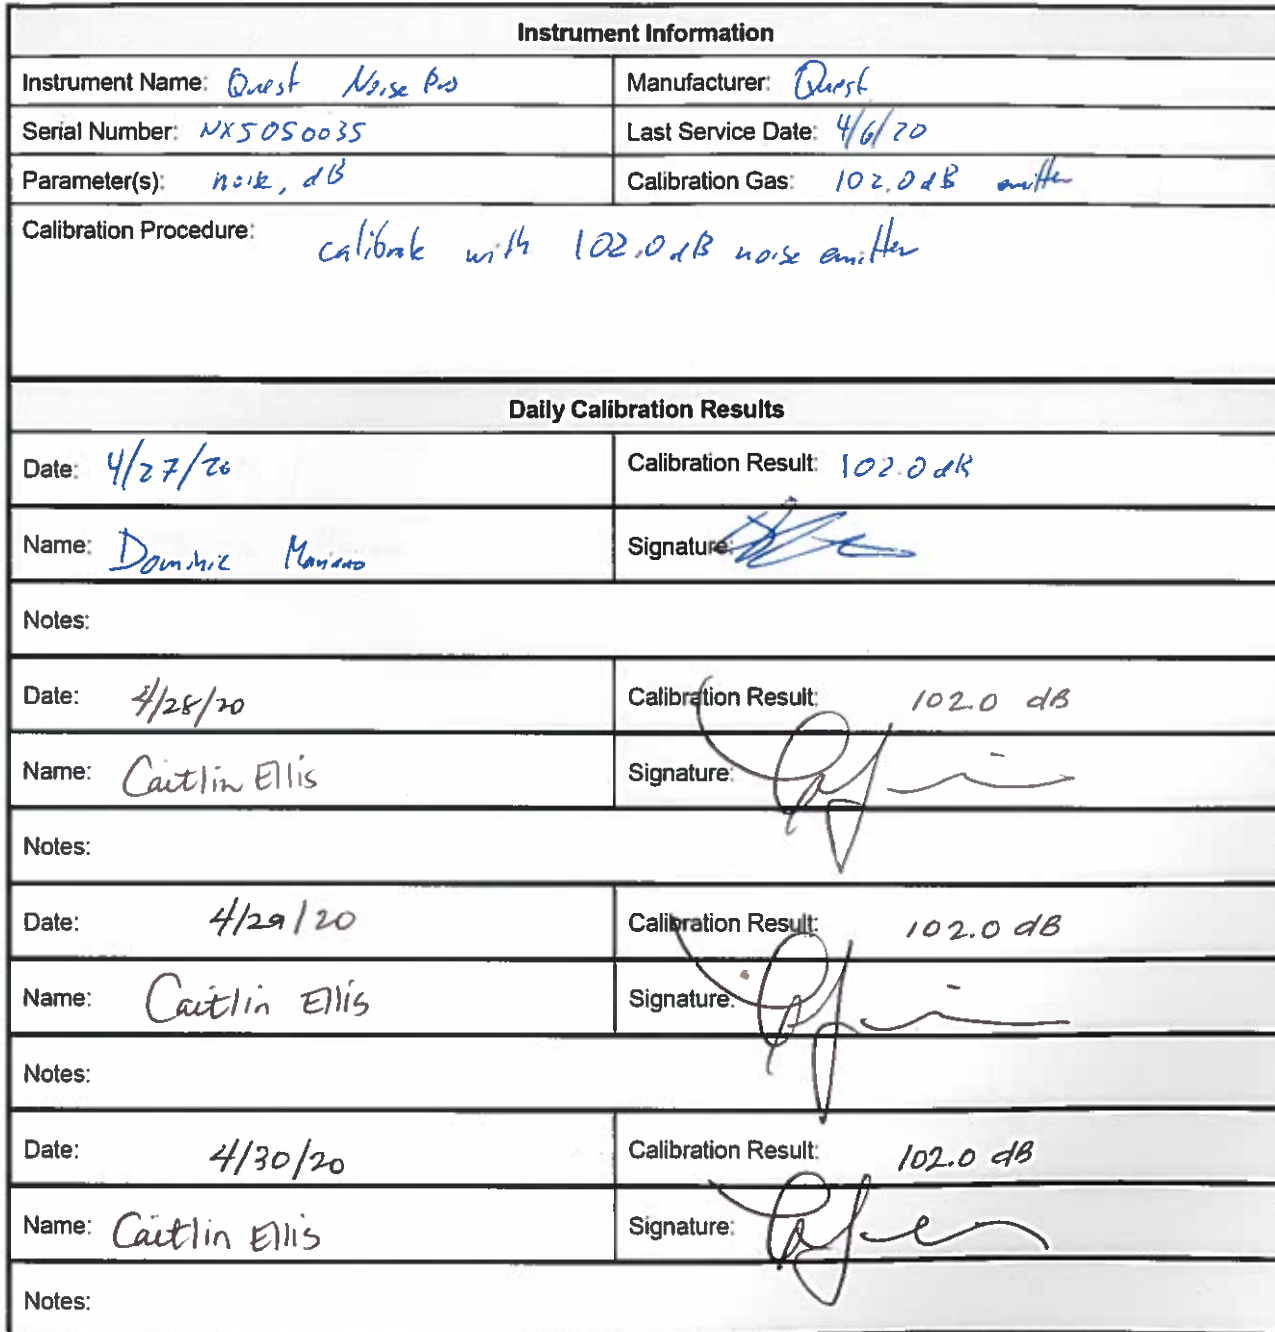 Instrument Information
Instrument Name: Quest Noise Pro
Manufacturer: Quest
Serial Number: NX5050035
Last Service Date: 4/6/20
Parameter(s): noise, dB
Calibration Gas: 102.0 dB emitter
Calibration Procedure: calibrate with 102.0 dB noise emitter
Daily Calibration Results
Date: 4/27/20
Calibration Result: 102.0 dB
Name: Dominic
Signature:
Notes:
Date: 4/28/20
Calibration Result: 102.0 dB
Name: Caitlin Ellis
Signature:
Notes:
Date: 4/29/20
Calibration Result: 102.0 dB
Name: Caitlin Ellis
Signature:
Notes:
Date: 4/30/20
Calibration Result: 102.0 dB
Name: Caitlin Ellis
Signature:
Notes: